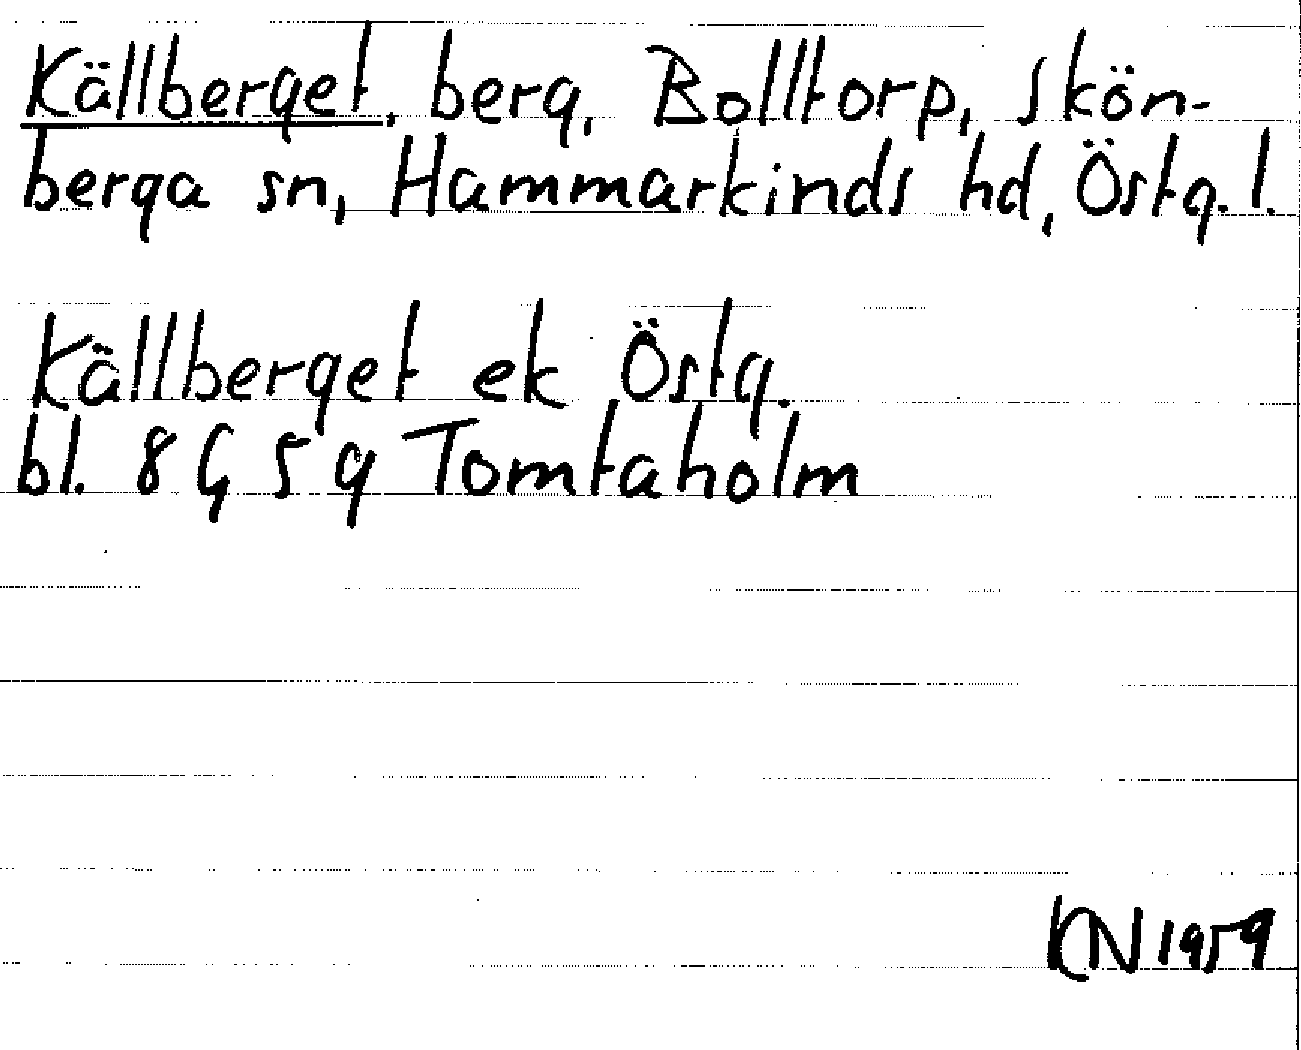 Källberget, berg, Bolltorp, Skön-
berga sn, Hammarkinds hd, Östg. l.
Källberget ek Östg.
bl. 8 G 5 g Tomtaholm
KN 1959